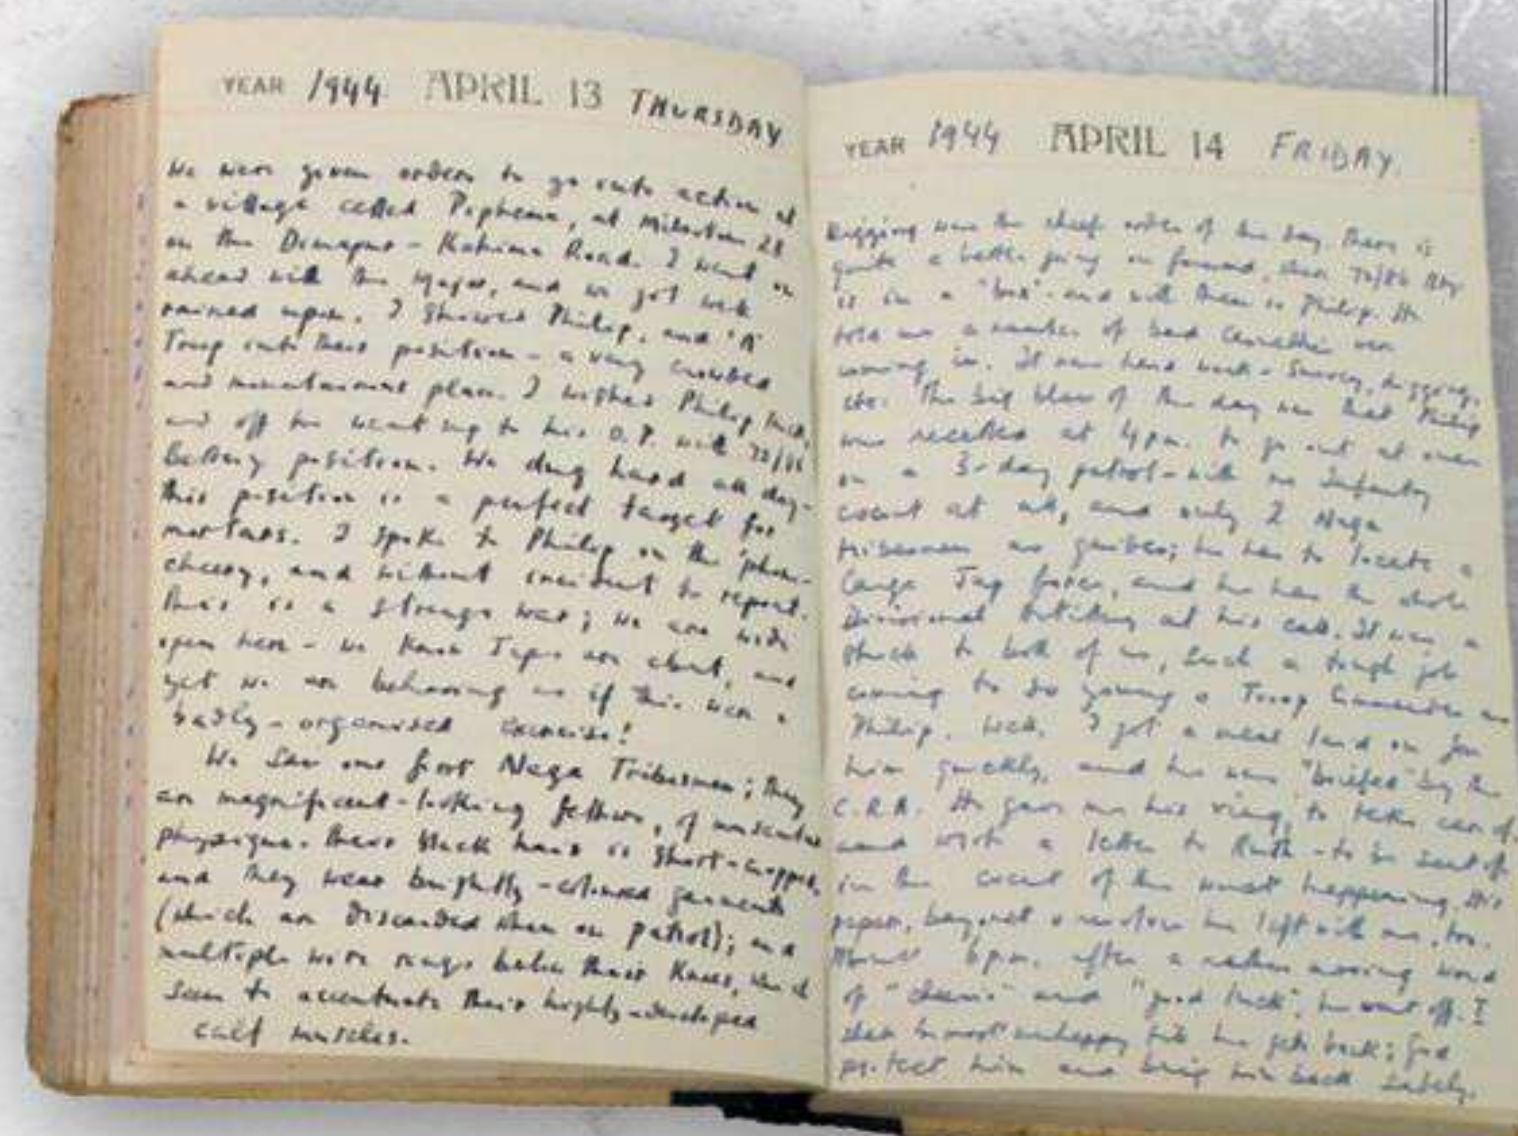 YEAR 1944 APRIL 13 THURSDAY
We were given orders to go into action at
a village called Piphema, at Milestone 28
on the Dimapur - Kohima Road. I went on
ahead with the Major, and we got well
rained upon. I showed Philip, and 'A'
Troop into their position - a very crowded
and mountainous place. I wished Philip luck,
and off he went up to his O.P. with
battery position. We dug hard all day -
this position is a perfect target for
mortars. I spoke to Philip on the 'phone -
cheery, and without incident to report.
This is a strange war; we are wide
open here - we know Japs are about, and
yet we are behaving as if this were a
badly-organised exercise!
We saw our first Naga Tribesmen; they
are magnificent-looking fellows, of muscular
physique. Their black hair is short-cropped,
and they wear brightly-coloured garments
(which are discarded when on patrol); and
multiple wire rings below their knees, which
seem to accentuate their highly-developed
calf muscles.
YEAR 1944 APRIL 14 FRIDAY.
Digging was the chief order of the day. There is
quite a battle going on forward, where Bty
is in a "box" - and with them is Philip. He
told me a number of bad casualties were
coming in. It was hard work - survey, digging,
etc. The big blow of the day was that Philip
was recalled at 4pm. to go out at once
on a 3-day patrol - with no Infantry
escort at all, and only 2 Naga
tribesmen as guides; he has to locate a
large Jap force, and he has the whole
Divisional Artillery at his call. It was a
shock to both of us, such a tough job
coming to so young a Troop Commander as
Philip. Well, I got a meal laid on for
him quickly, and he was "briefed" by the
C.R.A. He gave me his ring, to take care of,
and wrote a letter to Ruth - to be sent off
in the event of the worst happening. His
paper, bayonet & revolver he left with me, too.
About 6pm. after a rather moving word
of "cheerio" and "good luck", he went off. I
shall be most unhappy till he gets back; God
protect him and bring him back safely.